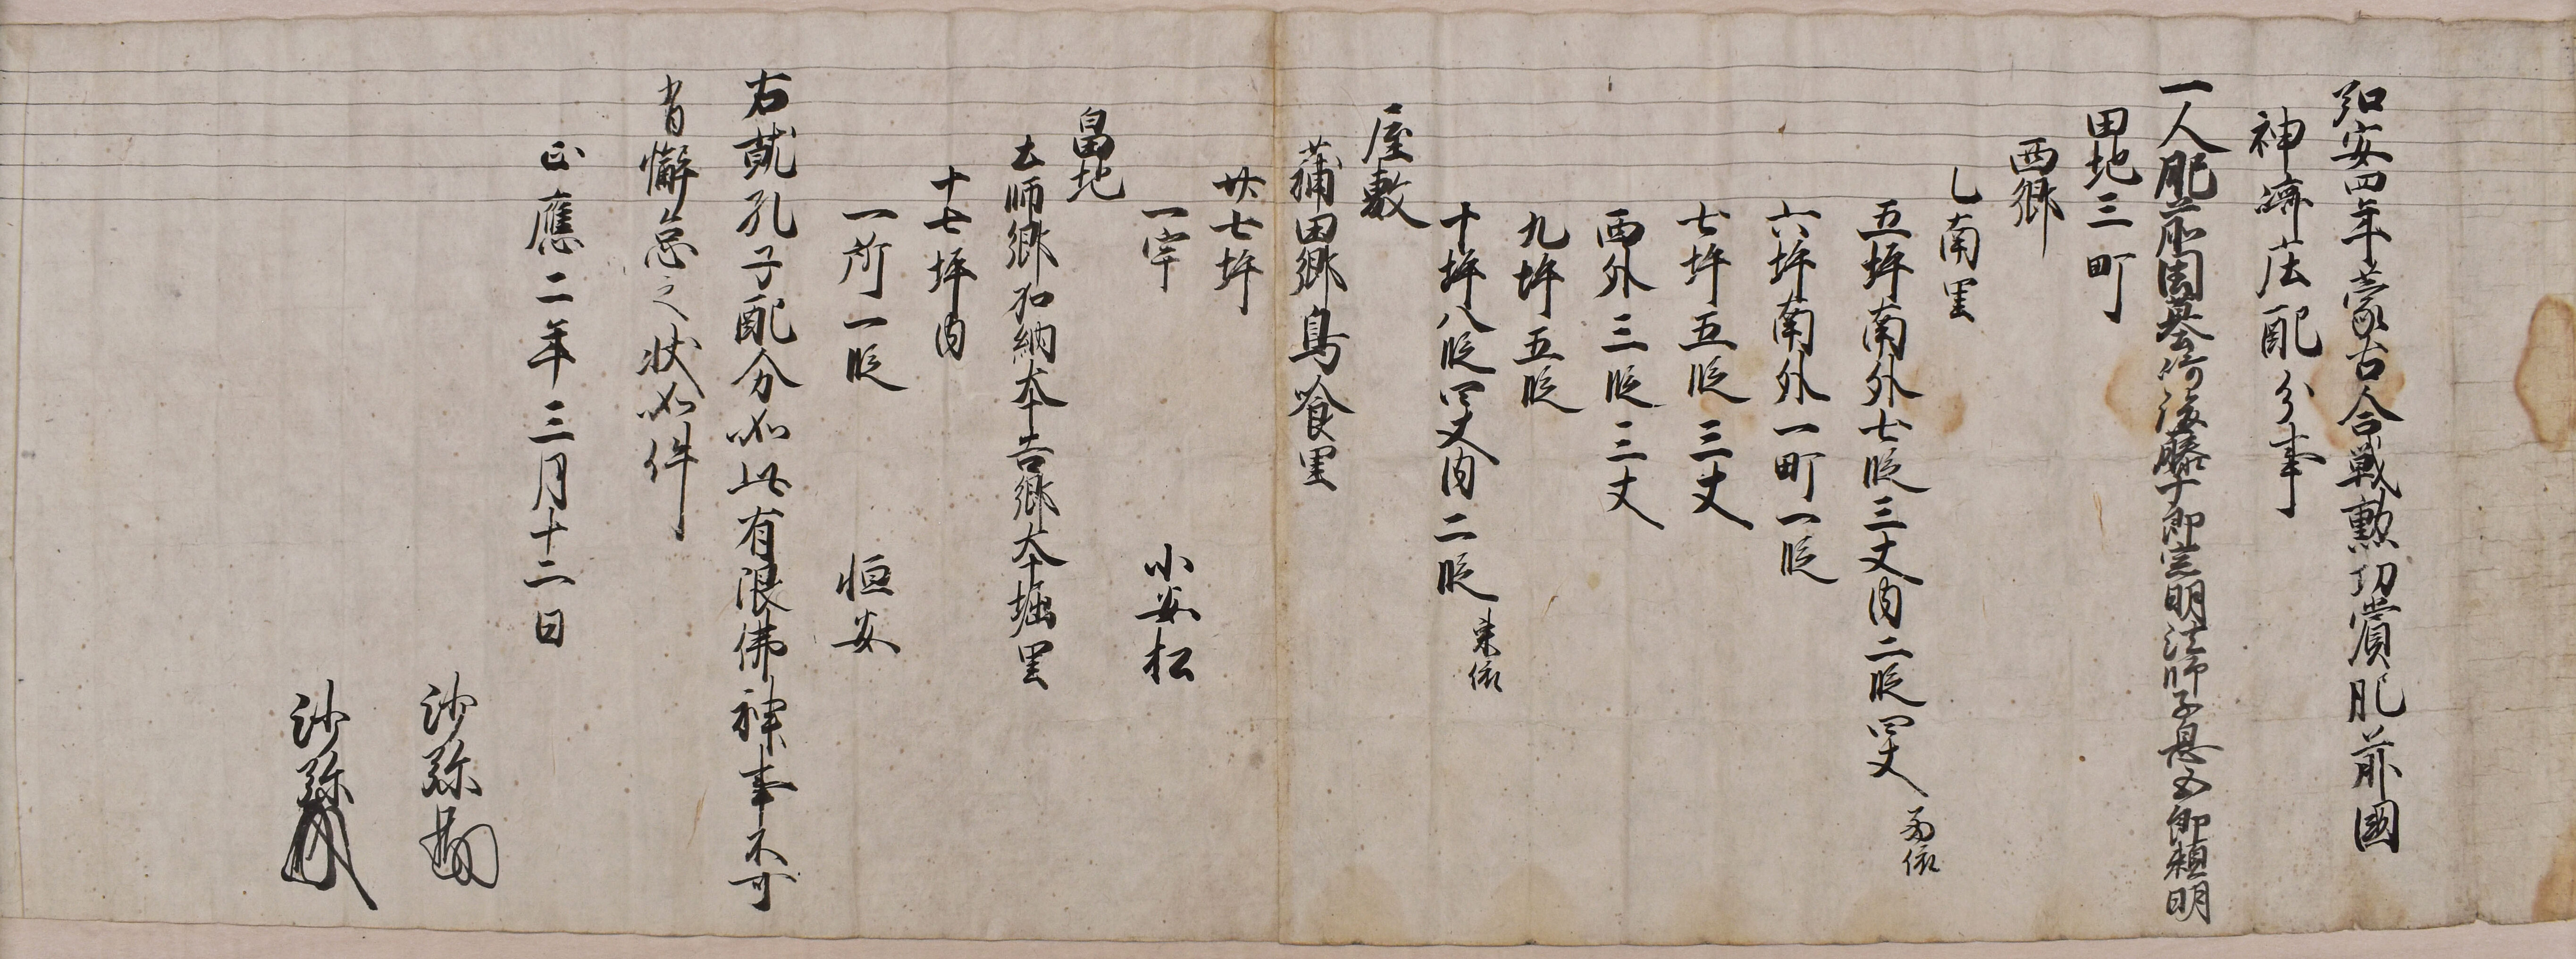 弘安四年蒙古合戦勲功賞肥前國
神崎庄配分事
一人肥前國墓崎後藤十郎定明法師子息又郎頼明
田地三町
西郷
乚南里
五坪南外七段三丈内二段四丈 南依
六坪南外一町一段
七坪五段三丈
西外三段三丈
九坪五段
十坪八段四丈内二段 東依
屋敷
蒲田郷鳥喰里
廿七坪
一宇 小安松
畠地
土師郷加納本告郷本堀里
十七坪内
一所一段 恒安
右就孔子配分如此有限佛神事不可
有懈怠之状如件
正應二年三月十二日
沙弥
沙弥